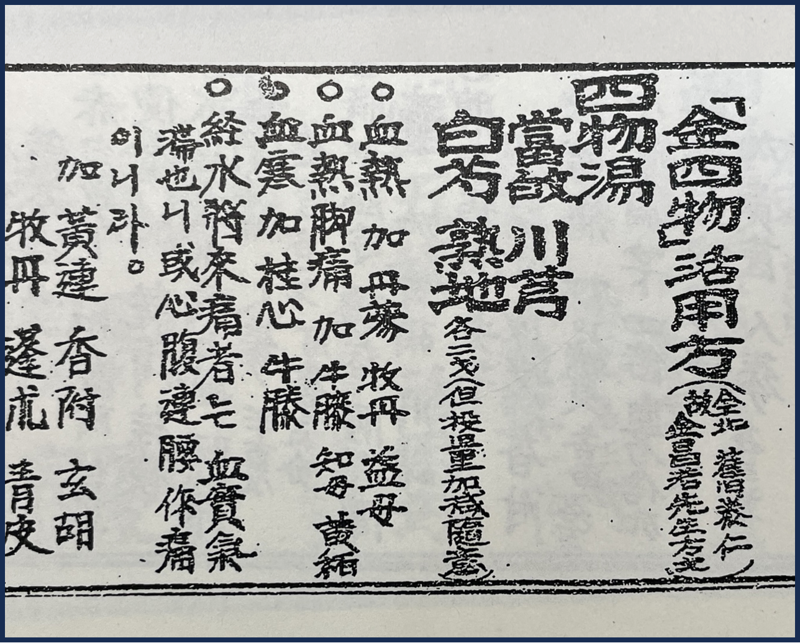 「金四物」活用方(全北 舊泰仁
故 金昌岩先生方文)
四物湯
當歸 川芎
白芍 熟地 各二戋(但投量加减隨意)
○血熱 加 丹蔘 牧丹 益母
○血熱脚痛 加 牛膝 知母 黃栢
○血寒 加 桂心 牛膝
○経水將來痛者는 血實氣
滯也니 或心腹連腰作痛
이니라。
加 黃連 香附 玄胡
牧丹 蓬朮 靑皮